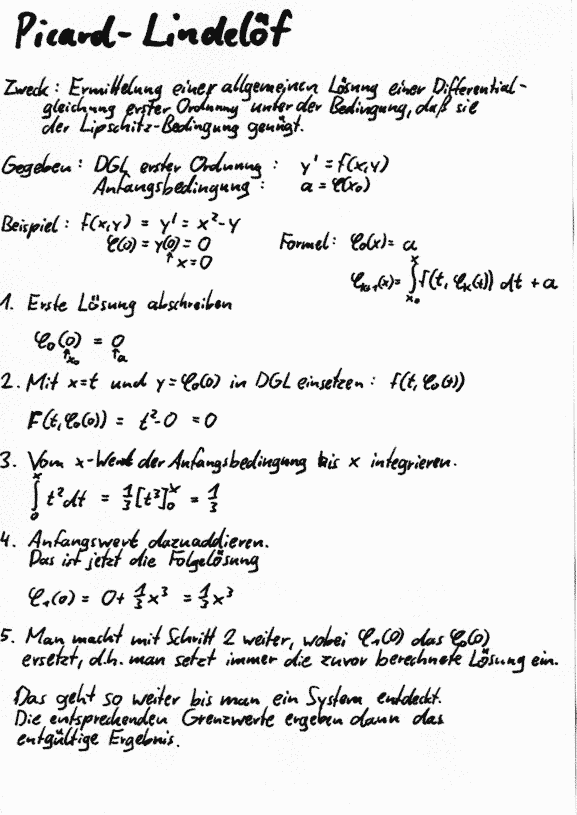 Picard-Lindelöf
Zweck: Ermittelung einer allgemeinen Lösung einer Differential-
gleichung erster Ordnung unter der Bedingung, daß sie
der Lipschitz-Bedingung genügt.
Gegeben: DGL erster Ordnung: y' = f(x,y)
Anfangsbedingung: a = φ(x₀)
Beispiel: f(x,y) = y' = x²-y
φ(0) = y(0) = 0
↑ x=0
Formel: φ₀(x) = a
φₖ₊₁(x) = ∫ₓ₀ˣ f(t, φₖ(t)) dt + a
1. Erste Lösung abschreiben
φ₀(0) = 0
↑x₀ ↑a
2. Mit x=t und y=φ₀(0) in DGL einsetzen: f(t, φ₀(t))
F(t, φ₀(0)) = t²-0 = 0
3. Vom x-Wert der Anfangsbedingung bis x integrieren.
∫₀ˣ t² dt = 1/3 [t³]₀ˣ = 1/3
4. Anfangswert dazuaddieren.
Das ist jetzt die Folgelösung
φ₁(0) = 0 + 1/3 x³ = 1/3 x³
5. Man macht mit Schritt 2 weiter, wobei φ₁(0) das φ₀(0)
ersetzt, d.h. man setzt immer die zuvor berechnete Lösung ein.
Das geht so weiter bis man ein System entdeckt.
Die entsprechenden Grenzwerte ergeben dann das
entgültige Ergebnis.